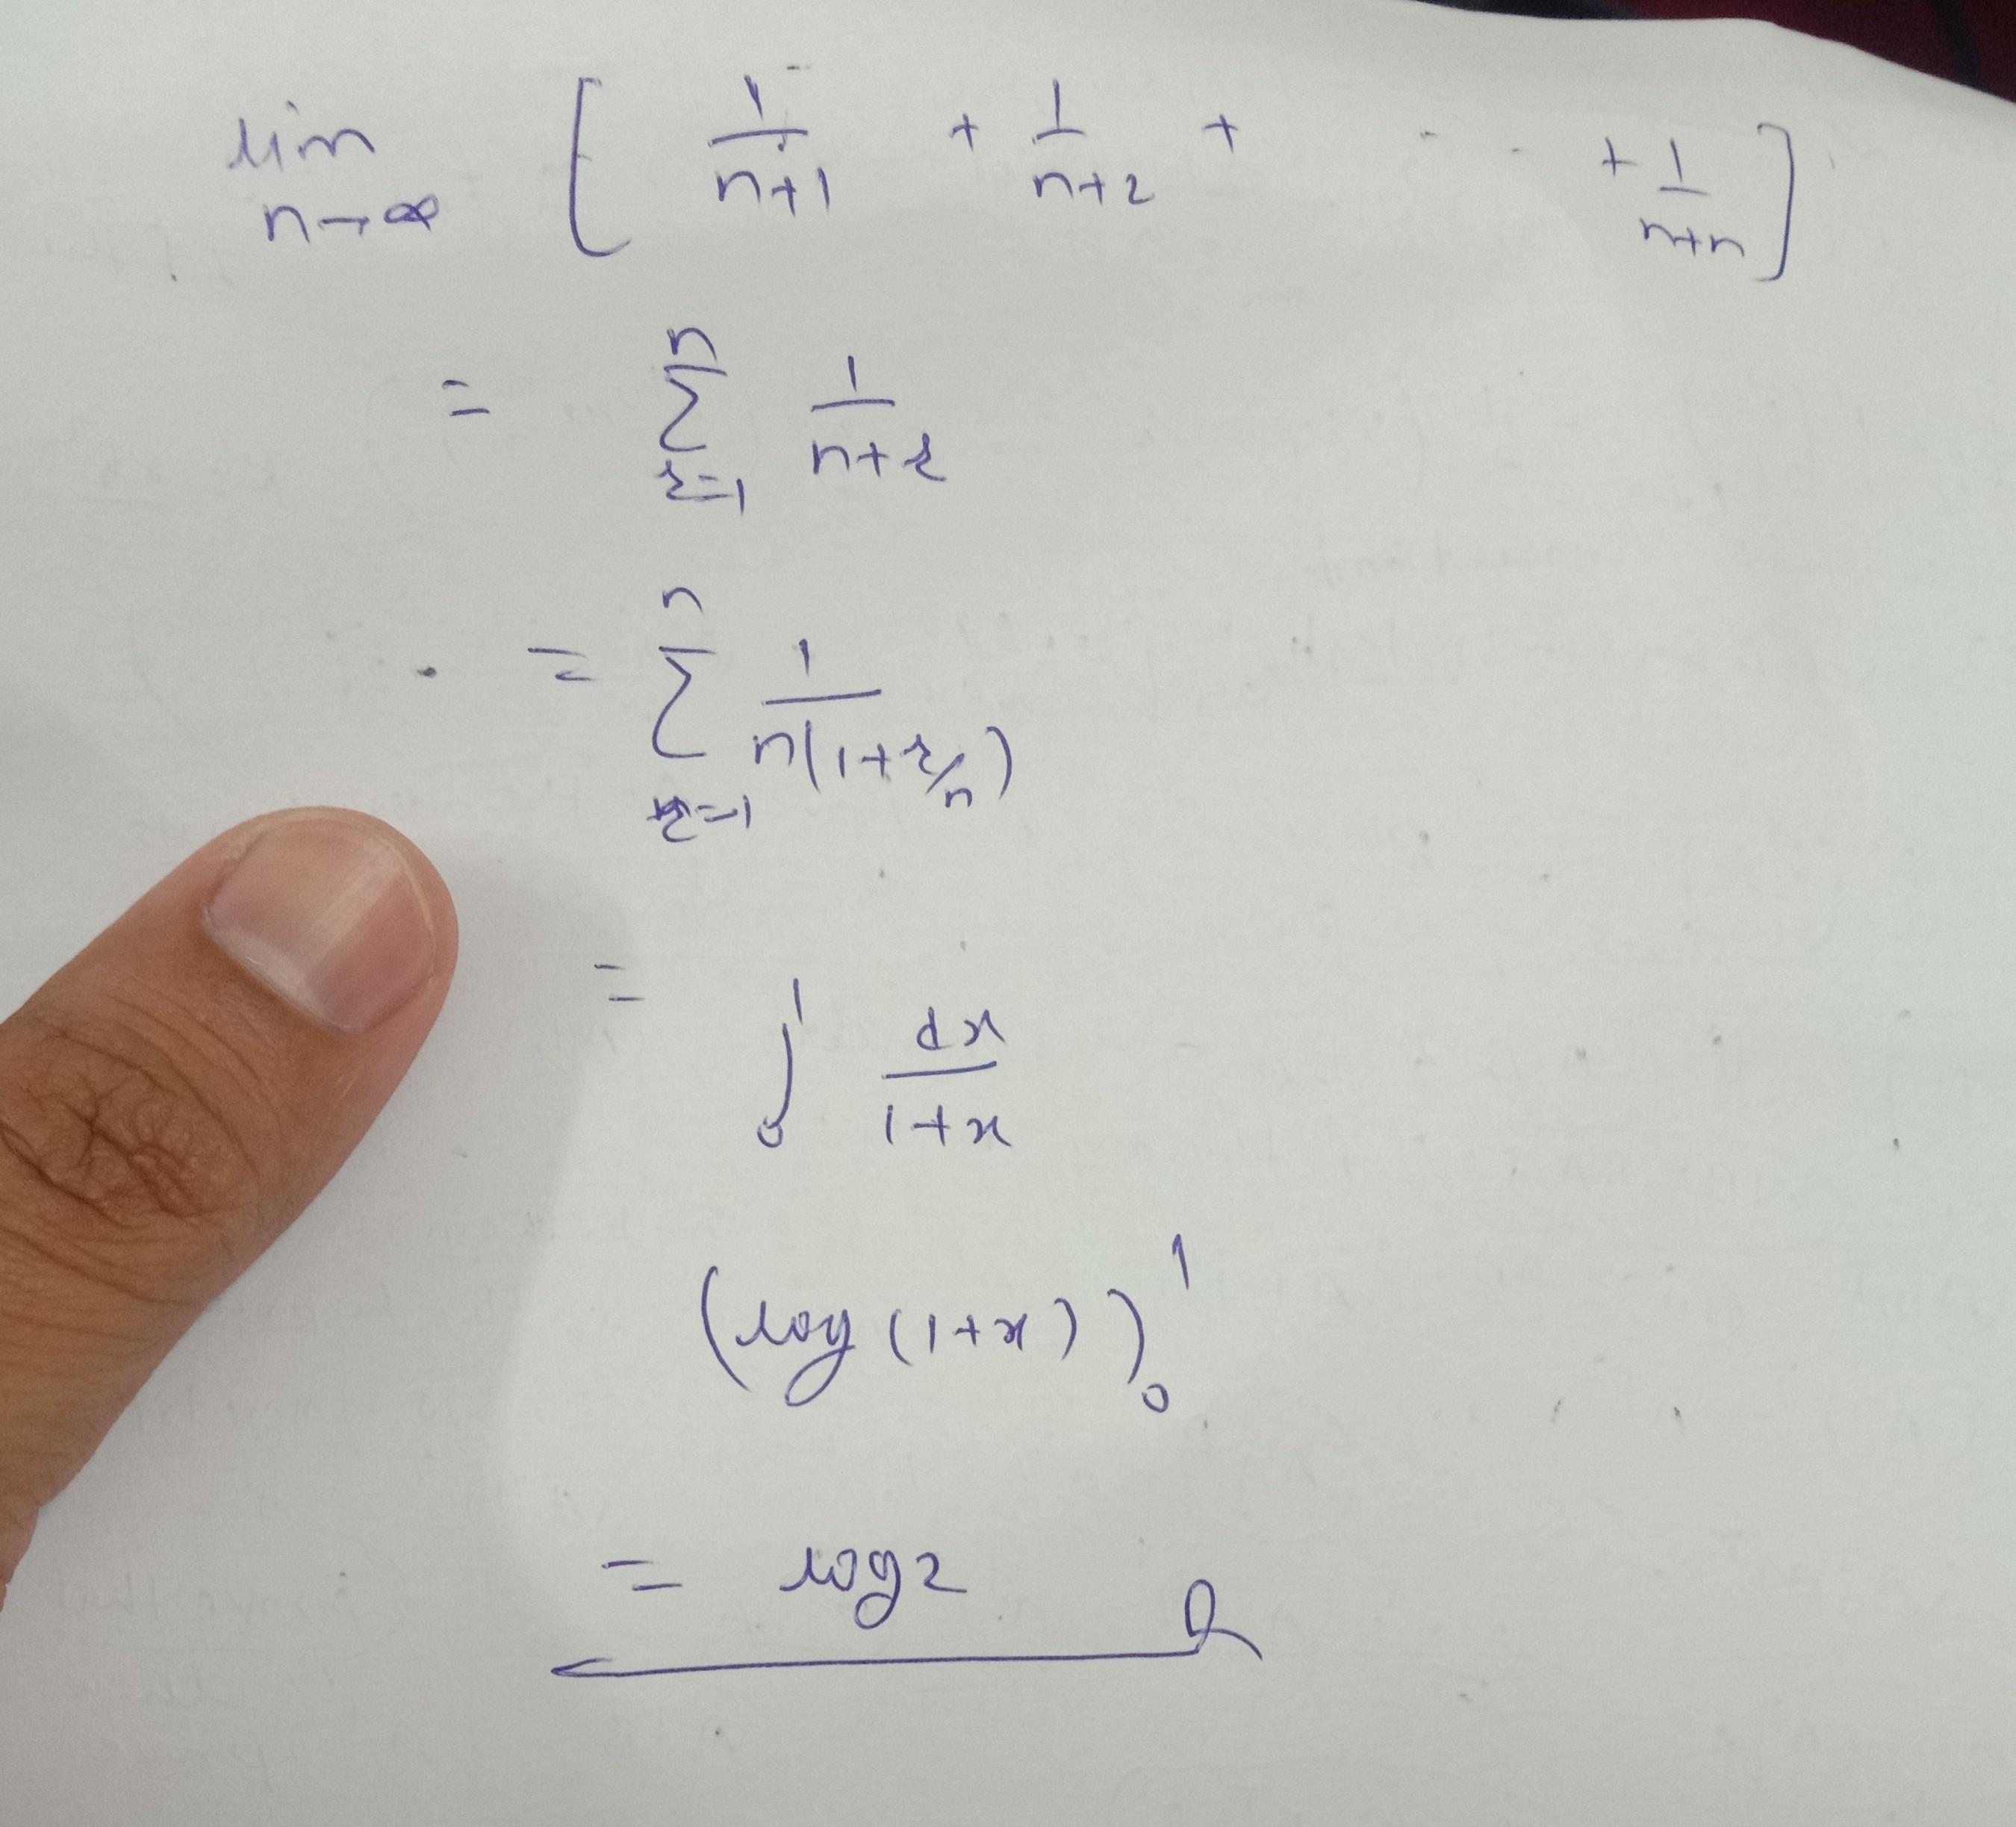 lim n→∞ [ 1/(n+1) + 1/(n+2) + - - + 1/(n+n) ]
= n Σ r=1 1/(n+r)
= n Σ r=1 1/(n(1+r/n))
= ∫₀¹ dx/(1+x)
(log(1+x))₀¹
= log2